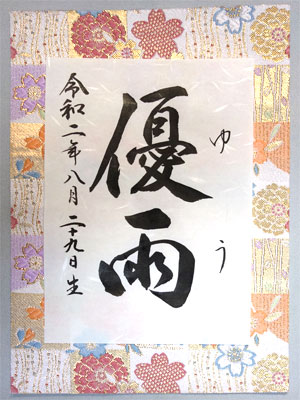 ゆう
優雨
令和二年八月二十九日生